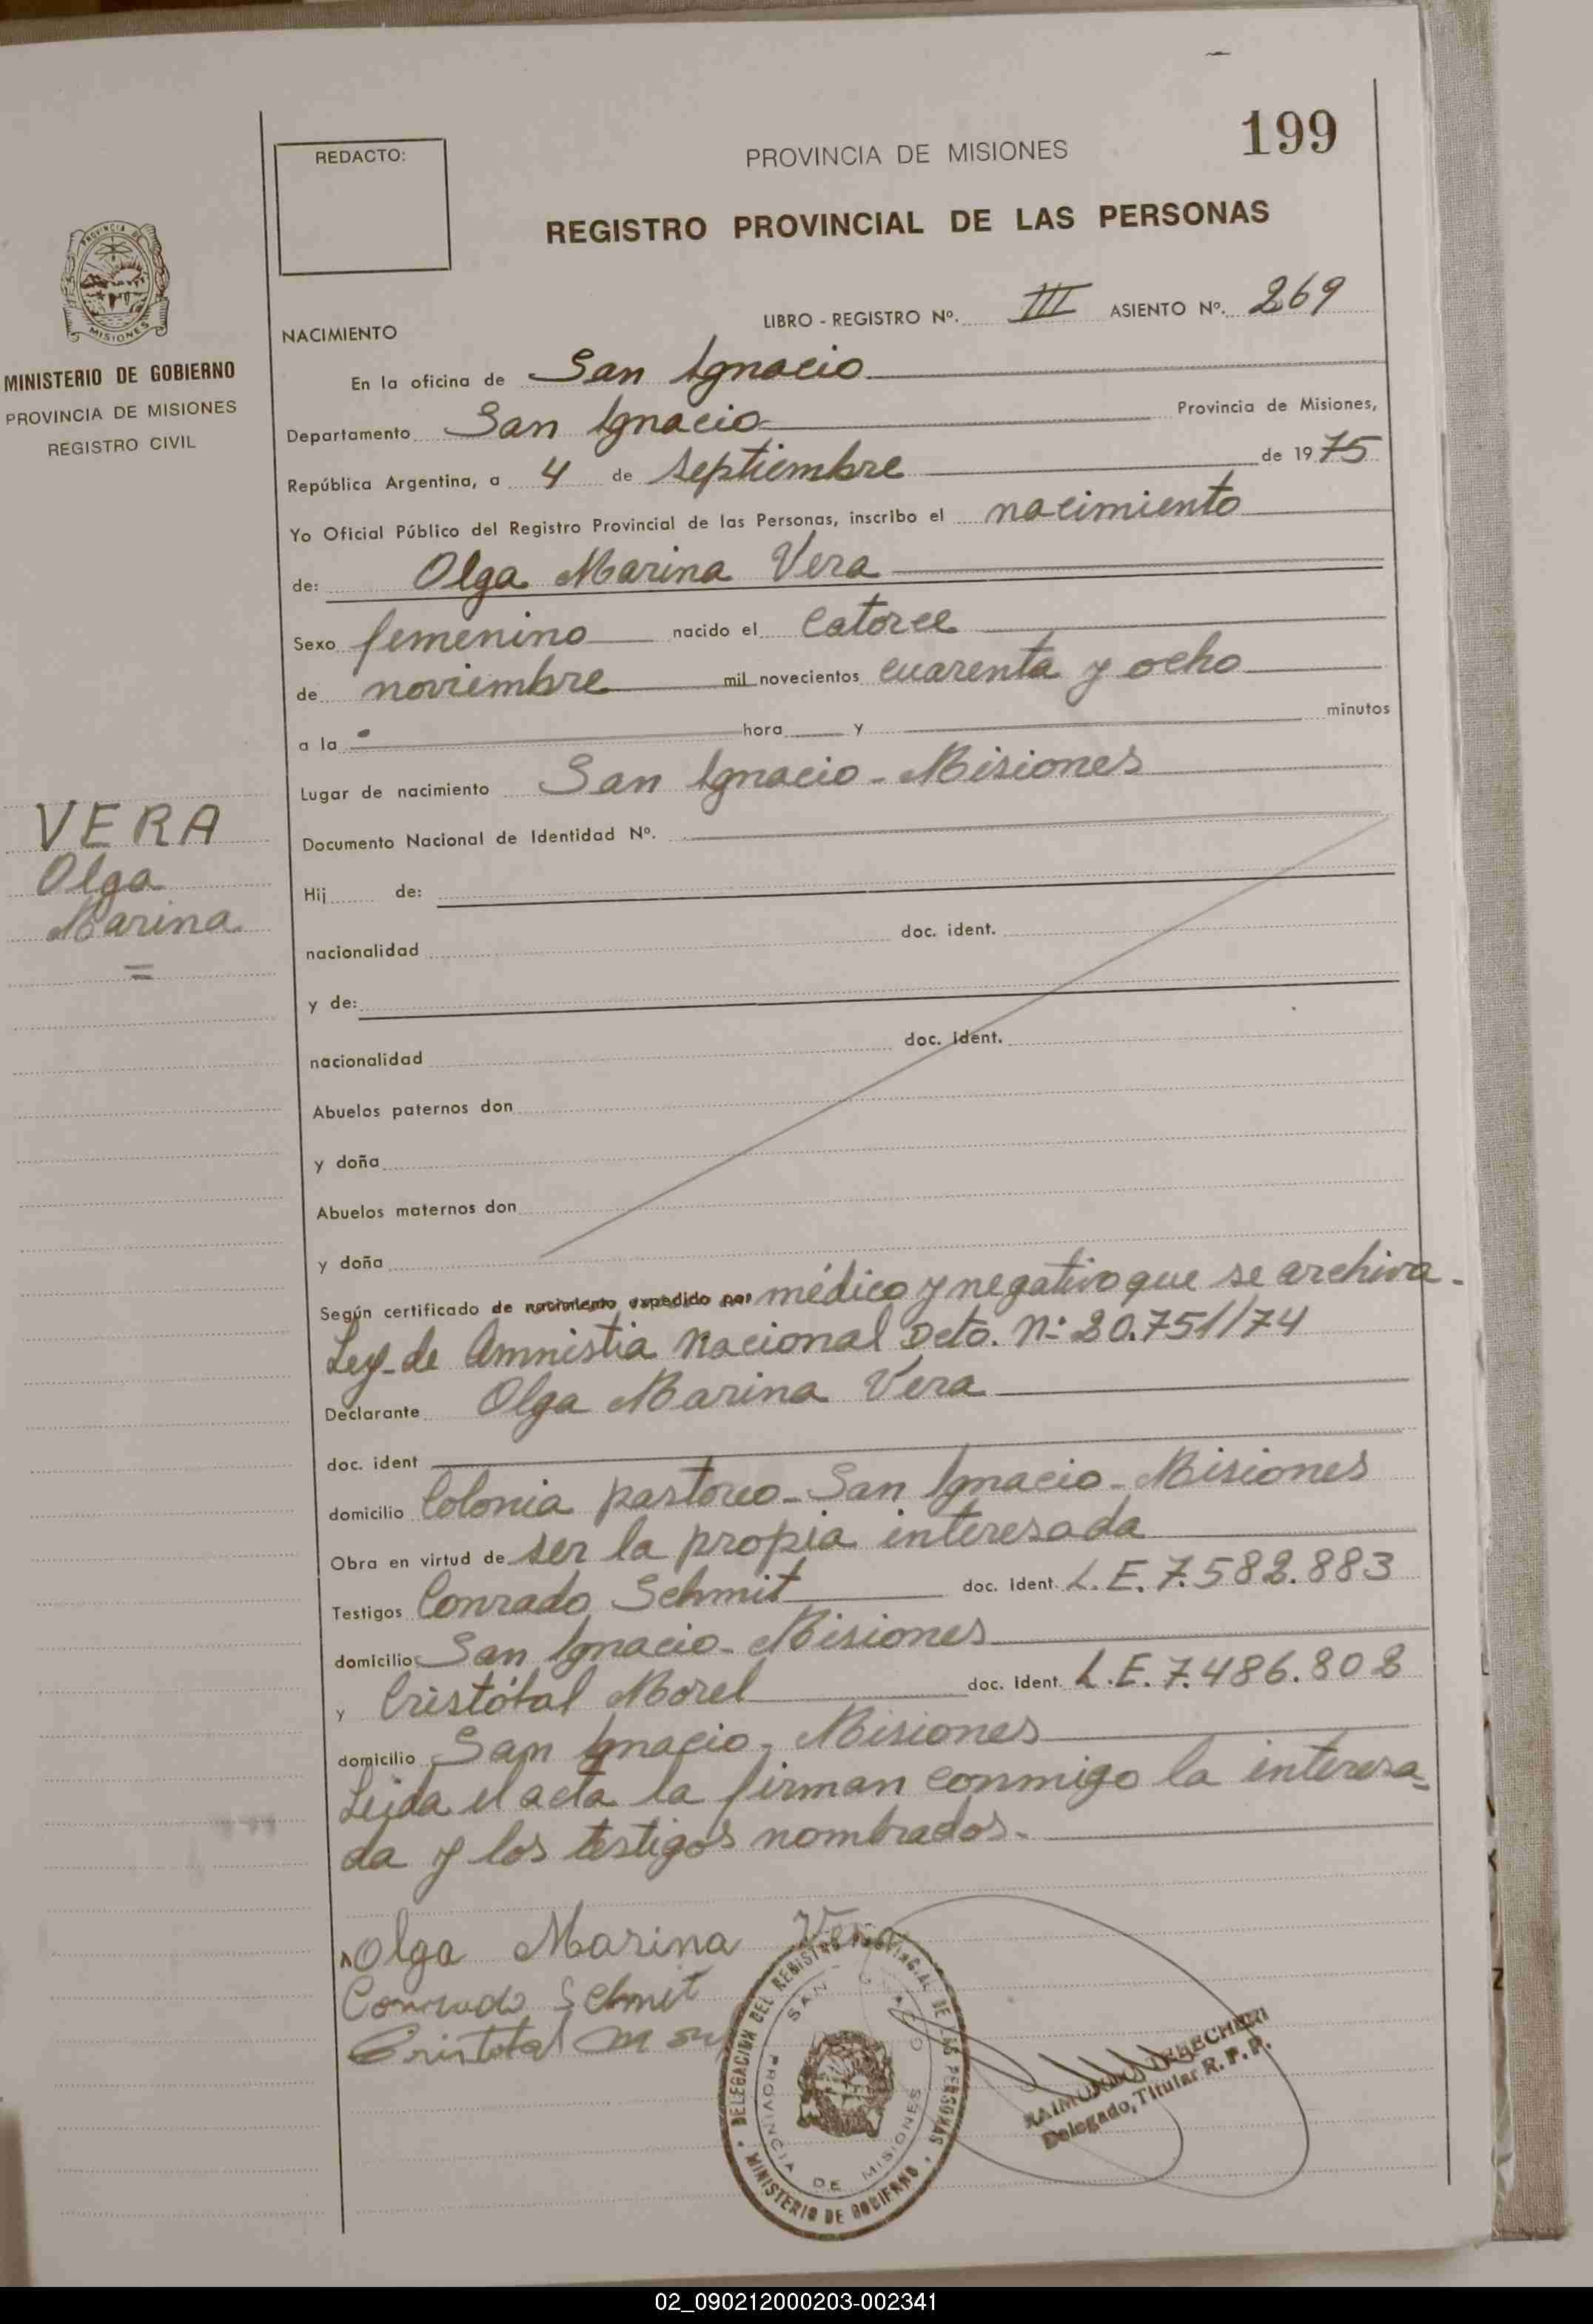 199
REDACTO:
PROVINCIA DE MISIONES
REGISTRO PROVINCIAL DE LAS PERSONAS
PROVINCIA DE
MISIONES
MINISTERIO DE GOBIERNO
PROVINCIA DE MISIONES
REGISTRO CIVIL
NACIMIENTO
LIBRO - REGISTRO Nº. III ASIENTO Nº. 269
En la oficina de San Ignacio
Departamento San Ignacio Provincia de Misiones,
República Argentina, a 4 de septiembre de 1975
Yo Oficial Público del Registro Provincial de las Personas, inscribo el nacimiento
de: Olga Marina Vera
Sexo femenino nacido el catorce
de noviembre mil novecientos cuarenta y ocho
a la hora y minutos
Lugar de nacimiento San Ignacio - Misiones
VERA
Olga
Marina
=
Documento Nacional de Identidad Nº.
Hij de:
nacionalidad doc. ident.
y de:
nacionalidad doc. ident.
Abuelos paternos don
y doña
Abuelos maternos don
y doña
Según certificado de nacimiento expedido por médico y negativo que se archiva -
Ley de Amnistia Nacional Dcto. Nº 20.751/74
Declarante Olga Marina Vera
doc. ident
domicilio Colonia pastoreo - San Ignacio - Misiones
Obra en virtud de ser la propia interesada
Testigos Conrado Schmit doc. Ident. L.E. 7.582.883
domicilio San Ignacio - Misiones
y Cristóbal Morel doc. Ident. L.E. 7.486.808
domicilio San Ignacio - Misiones
Leida el acta la firman conmigo la interesa-
da y los testigos nombrados.-
Olga Marina Vera
Conrado Schmit
Cristobal
DELEGACION DEL REGISTRO PROVINCIAL DE LAS PERSONAS
SAN IGNACIO
PROVINCIA DE MISIONES
MINISTERIO DE GOBIERNO
RAIMUNDO
Delegado, Titular R. P. P.
02_090212000203-002341